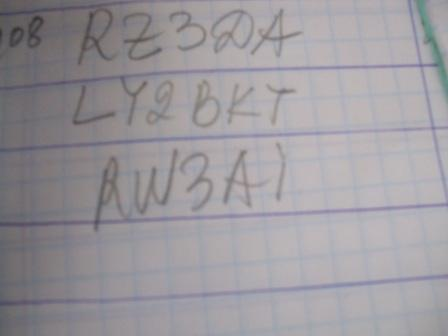 108 RZ3DA
LY2BKT
RW3AI